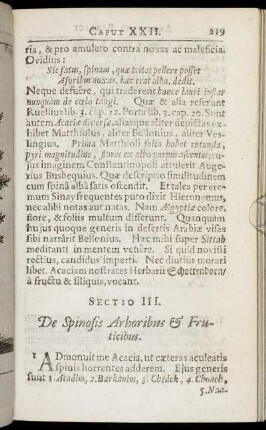 CAPUT XXII. 219
ria, & pro amuleto contra noxas ac maleficia.
Ovidius:
Sic fatus, spinam, quâ tristes pellere posset
A foribus noxas, hæc erat alba, dedit.
Neque defuêre, qui traderent hance lauri instar
nunquàm de cœlo tangi. Quæ & alia referunt
Ruellius lib. 3. cap. 12. Porta lib. 7. cap. 20. Sunt
autem Acaciæ diversæ, aliterque alter depictas ex-
hibet Matthiolus, aliter Bellonius, aliter Ves-
lingius. Prima Matthioli folia habet rotunda,
pyri magnitudine, flores ex albo purpurascentes; cu-
jus imaginem Constantinopoli attulerit Auge-
rius Busbequius. Quæ descriptio similitudinem
cum spinâ albâ satis ostendit. Et tales per ere-
mum Sinay frequentes puto dixit Hieronymus,
nec alibi notas aut natas. Nam Ægyptiæ colore,
flore, & foliis multum differunt. Quanquàm
hujus quoque generis in desertis Arabiæ visas
sibi narrârit Bellonius. Hæc mihi super Sittah
meditanti in mentem venêre. Si quid novisti
rectius, candidus imperti. Nec diutius morari
libet. Acaciam nostrates Herbarii Schottendorn/
â fructu & siliquis, vocant.
SECTIO III.
De Spinosis Arboribus & Fru-
ticibus.
1 ADmonuit me Acacia, ut cæteras aculeatis
spinis horrentes adderem. Ejus generis
sunt 1. Atadim, 2. Barkanim, 3. Chedek, 4. Choach,
5. Naa-